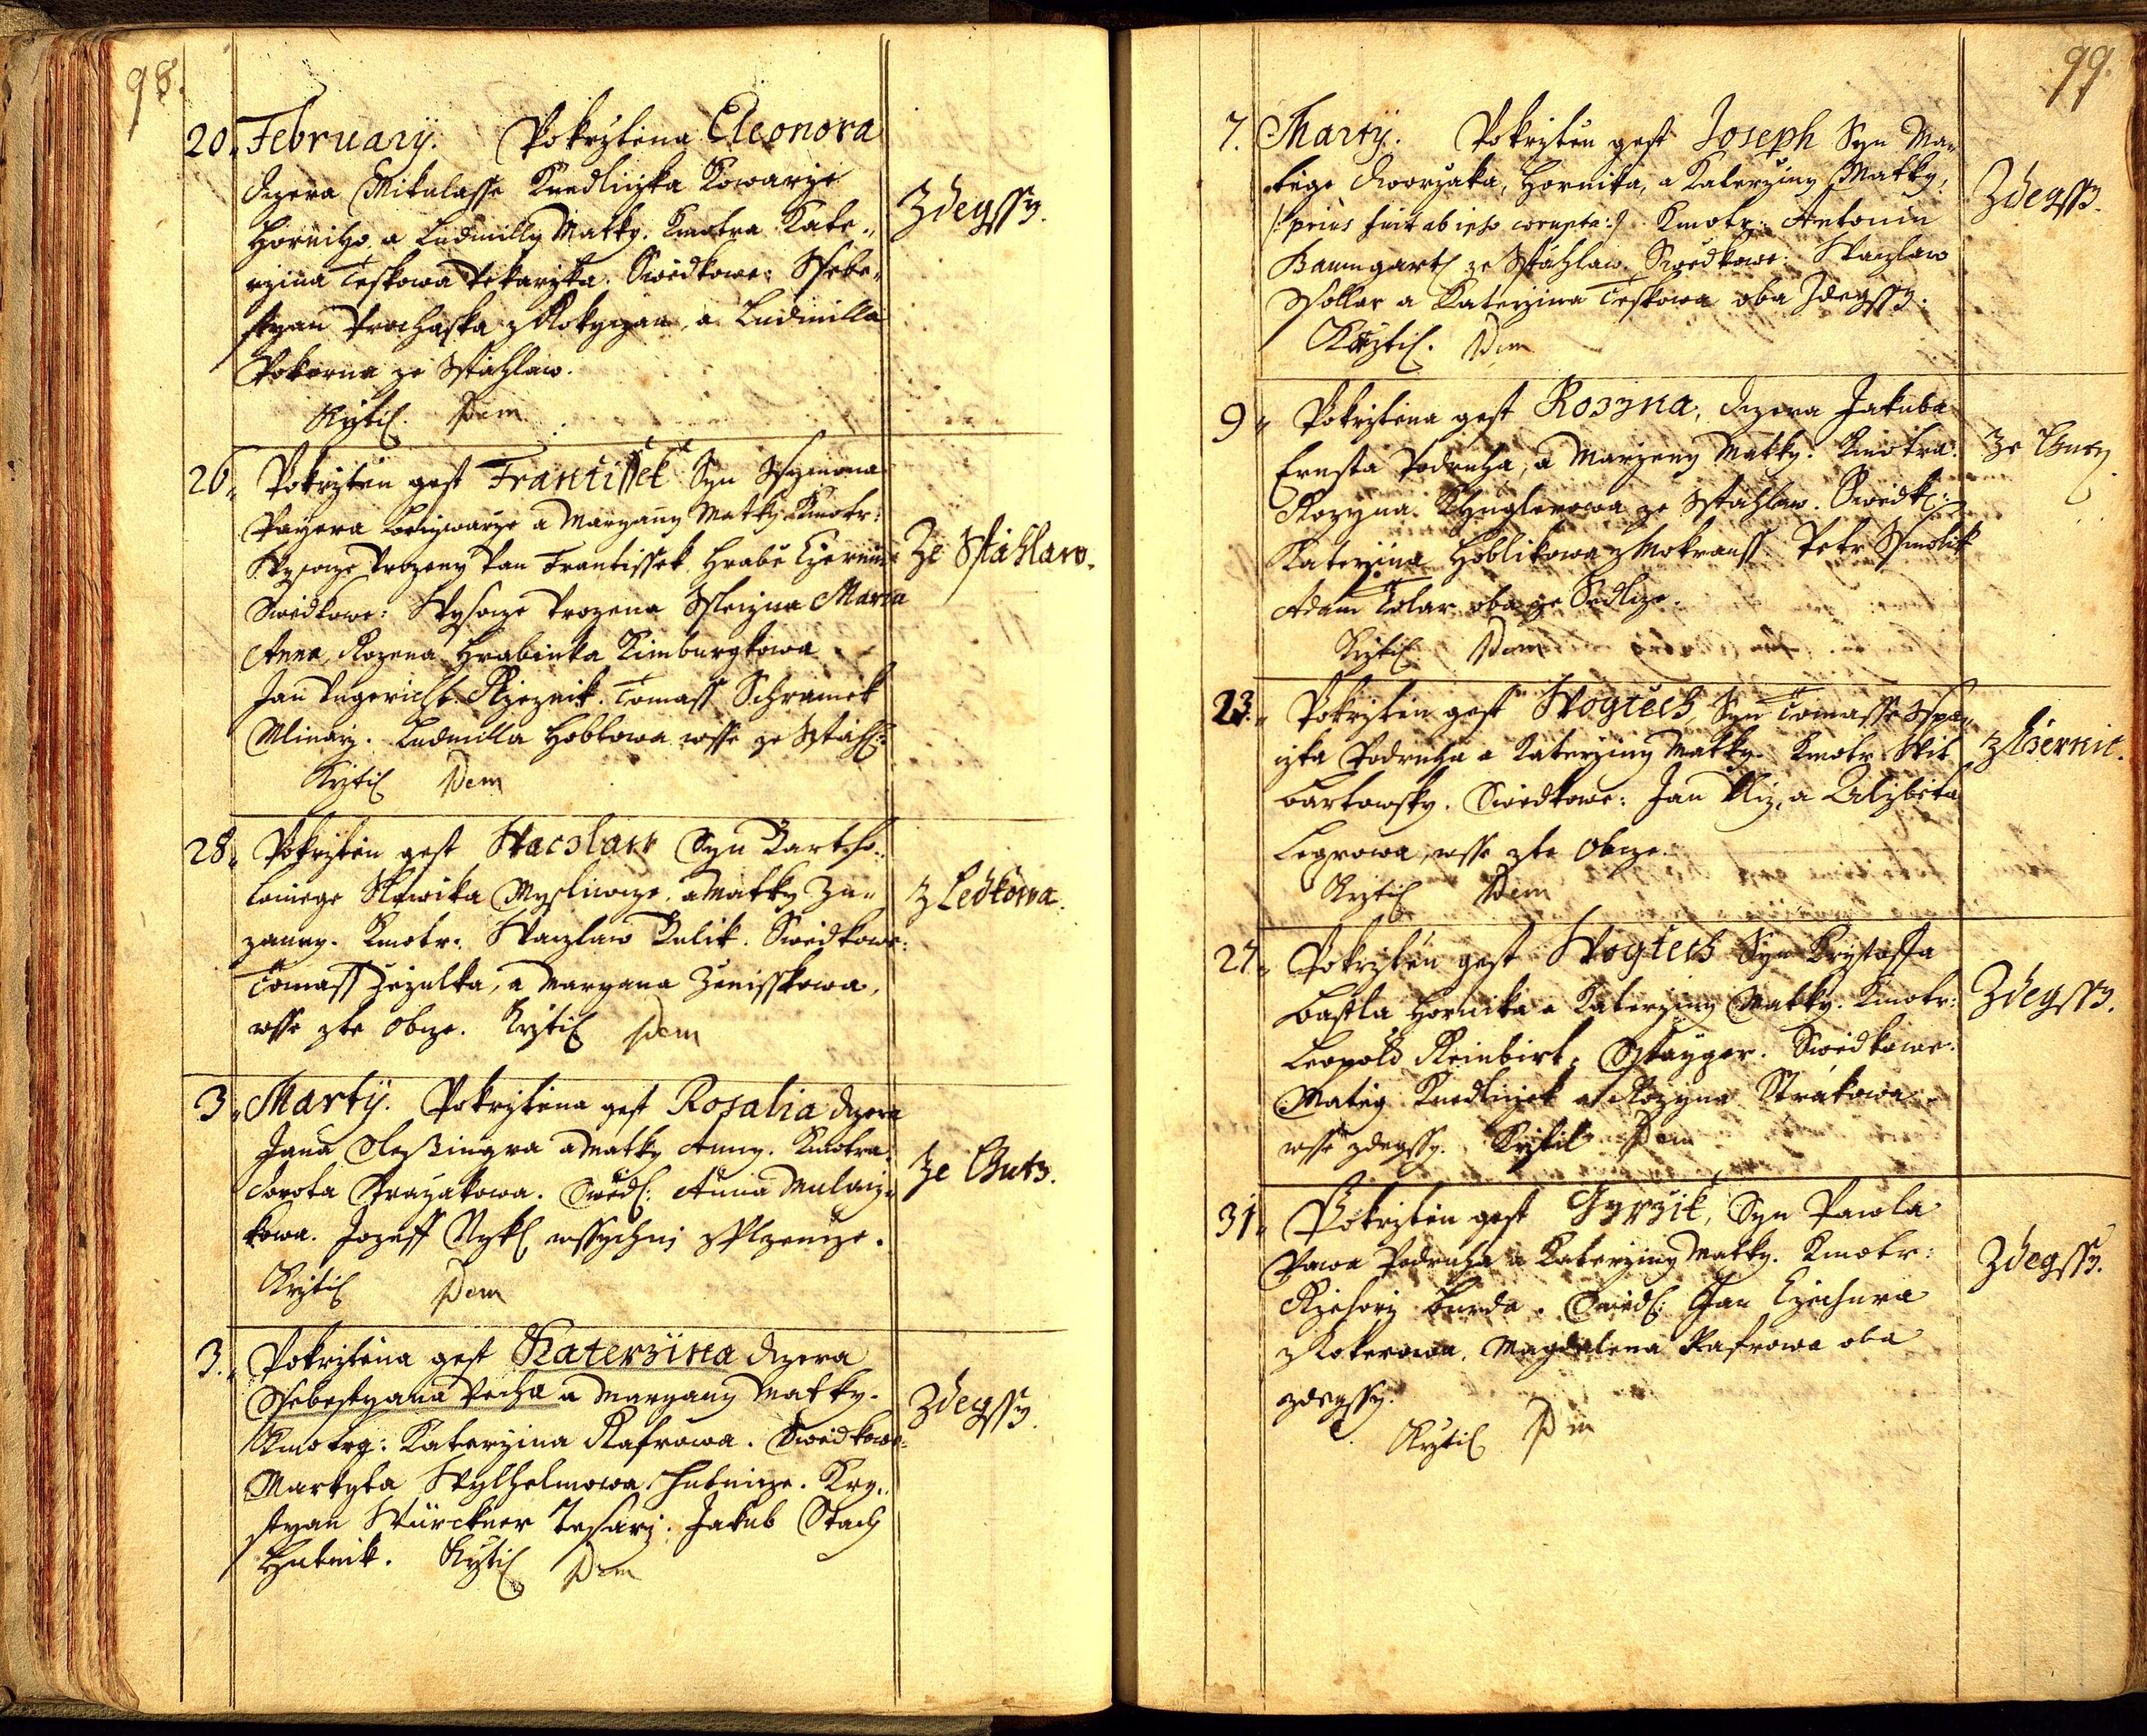 98.
20. February. Pokrztena Eleonora
dczera Mikulasse Knedliczka Kowarze
Horniho a Ludmilly Matky. Kmotra Kate-
rzina Teskowa Pekarzka. Swědkowe: Ssebe-
styan Prochaska z Rokyczan, a Ludmilla
Pokorna ze Sstiahlaw.
Krztil. Dem
Zdegssy.
26. Pokrzten gest Frantissek Syn Ssymona
Payera a Maryany Matky. Kmotr:
Wysocze Urozeny Pan Frantissek Hrabě Czernin
Swědkowe: Wysocze Urozena Sleczna Maria
Anna, Rozena Hrabinka Kimburgkowa
Jan Rzeznik. Tomass Schramek
Mlinarz. Ludmilla Hoblowa wsse ze Sstiahl:
Krztil Dem
Ze Sstiahlaw.
28. Pokrzten gest Waczlaw Syn Bartho-
lomiege Slawika Mysliwcze, a Matky Zu-
zanny. Kmotr: Waczlaw Kulik. Swědkowe:
Tomass Zezulka, a Maryana Zenisskowa,
wsse zte Obcze. Krztil Dem
z Ledkowa.
3. Marty. Pokrztena gest Rosalia dczera
Jana a Matky Anny. Kmotra
Dorota Strayakowa. Swěd: Anna Mulacz-
kowa. Jozeff Nykl wssychni z Plzenize.
Krztil Dem
Ze Chutz.
3. Pokrztena gest Katerzina dczera
Ssebestyana Pecha a Maryany Matky.
Kmotrz: Katerzina Kafrowa. Swědkowe
Martyta Wylhelmowa Hutnicze. Kry-
styan Würckner Tesarz. Jakub Stach
Hutnik. Krztil Dem
Zdegssy.
99.
7. Marty. Pokrzten gest Joseph Syn Ma-
tiege Dworzaka, Hornika, a Katerziny Matky,
/: prius fuit ab ipso corupta :/ Kmotr: Antonin
Baumgartl ze Sstiahlaw. Swědkowe: Waczlaw
Wollar a Katerzina Teskowa oba Zdegssy.
Krztil. Dem
Zdegssy.
9. Pokrztena gest Rozyna, dczera Jakuba
Ernsta Podruha, a Marzeny Matky. Kmotra
Rozyna Kynglerowa ze Sstiahlaw. Swědk:
Katerzina Hoblikowa z Mokrauss. Petr Smolik
Adam Tolar oba ze Sedlcze.
Krztil Dem
Ze
23. Pokrzten gest Wogtěch, Syn Tomasse Sspa-
czka Podruha a Katerziny Matky. Kmotr Wit
Bartowsky. Swědkowe: Jan a Alzbeta
Legrowa, wsse zte Obcze.
Krztil Dem
z Czernic.
27. Pokrzten gest Wogtěch Syn Krystoffa
Bastla Hornika a Katerziny Matky. Kmotr:
Leopold Reinbirt, Sstayger. Swědkowe:
Matěg Knedliczek a Rozyna Strakowa
wsse zdegssy. Krztil Dem
Zdegssy.
31. Pokrzten gest Gyrzik, Syn Pawla
Pawa Podruha a Katerziny Matky. Kmotr:
Rzehorz Burda. Swěd: Jan Czechura
z Kokorowa, Magdalena Kafrowa oba
zdegssy.
Krztil Dem
Zdegssy.